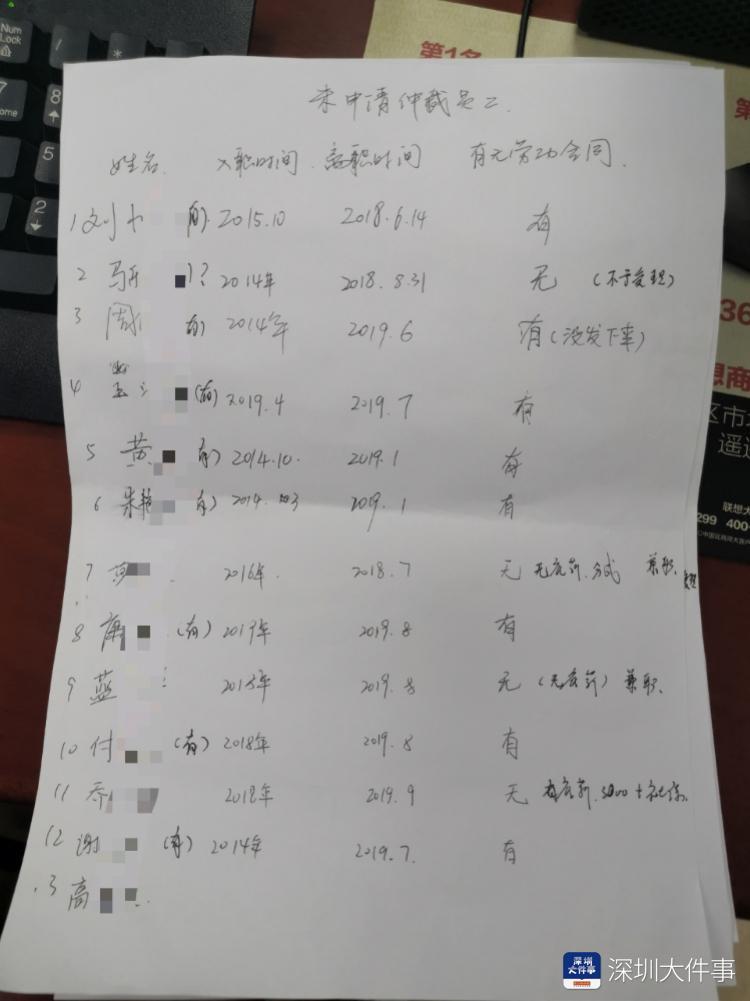 未申请仲裁员工
姓名 入职时间 离职时间 有无劳动合同
1 刘 (有) 2015.10 2018.6.14 有
2 ? 2014年 2018.8.31 无 (不予受理)
3 周 (有) 2014年 2019.6 有(没发下来)
4 (有) 2019.4 2019.7 有
5 黄 有) 2014.10. 2019.1 有
6 朱艳 有) 2014. 2019.1 有
7 2016年 2018.7 无 无底薪.分成 兼职.
8 (有) 2017年 2019.8 有
9 蓝 2015年 2019.8 无 (无底薪) 兼职.
10 付 (有) 2018年 2019.8 有
11 乔 2018年 2019.9 无 有底薪.3000+社保.
12 谢 (有) 2014年 2019.7. 有
13 高
第1名
Num Lock
7 Home
8
5
2
36
想商
区市
联想大
299 400
深圳大件事
深圳大件事